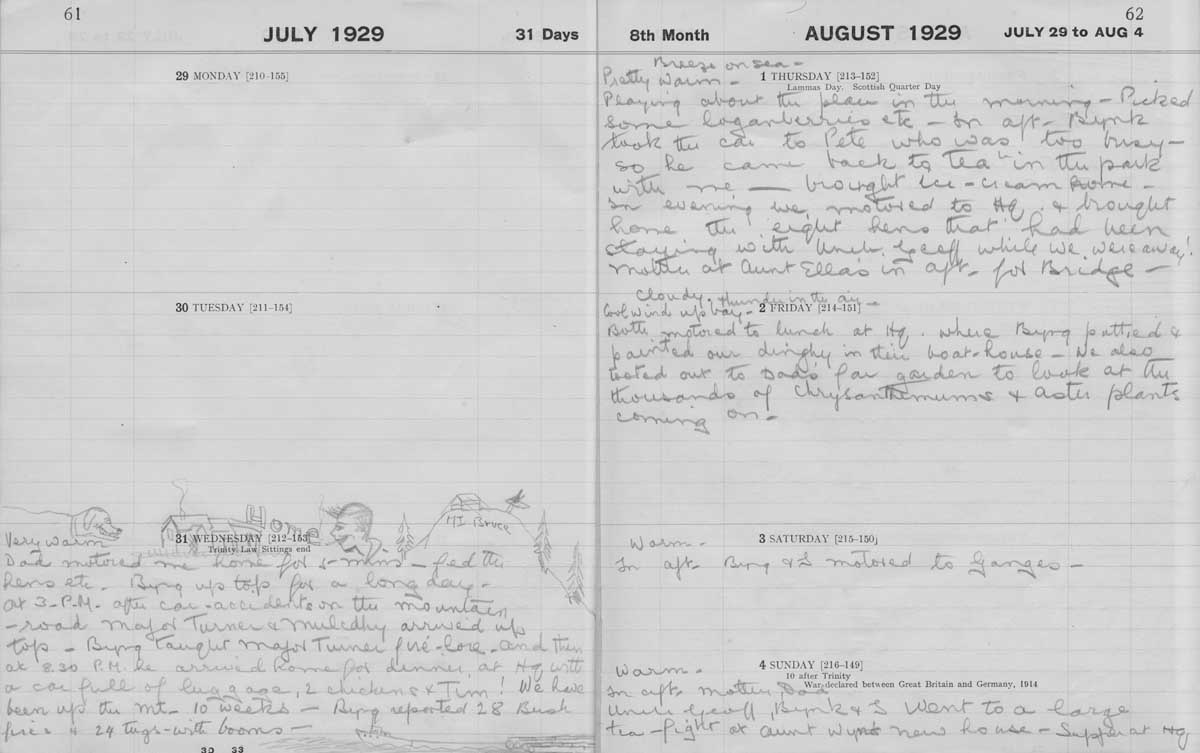 61
JULY 1929
31 Days
29 MONDAY [210-155]
30 TUESDAY [211-154]
Home
Mt Bruce
31 WEDNESDAY [212-153]
Trinity Law Sittings end
Very warm
Dad motored me home for 5-mins - fed the
hens etc. Byng up top for a long day -
at 3-P.M. after car-accidents on the mountain
-road Major Turner & Mulcahy arrived up
top - Byng taught Major Turner fire-lore - and then
at 8.30 P.M. he arrived home for dinner at Hq with
a car full of luggage, 2 chickens & Tim! We have
been up the mt- 10 weeks - Byng reported 28 Bush
fires & 24 tugs-with booms -
30 33
62
8th Month
AUGUST 1929
JULY 29 to AUG 4
Breeze on sea -
Pretty warm -
1 THURSDAY [213-152]
Lammas Day. Scottish Quarter Day
Playing about the place in the morning - Picked
some loganberries etc - In aft - Bynk
took the car to Pete who was too busy -
so he came back to tea in the park
with me — brought ice-cream home -
In evening we motored to Hq. & brought
home the eight hens that had been
staying with Uncle Geoff while we were away!
Mother at Aunt Ella's in aft - for Bridge -
Cloudy. & thunder in the air -
Cool wind up bay -
2 FRIDAY [214-151]
Both motored to lunch at Hq. where Byng puttied &
painted our dinghy in their boat-house - We also
tooted out to Dad's far garden to look at the
thousands of Chrysanthemums & aster plants
coming on -
Warm -
3 SATURDAY [215-150]
In aft - Byng & I motored to Ganges -
Warm -
4 SUNDAY [216-149]
10 after Trinity
War declared between Great Britain and Germany, 1914
In aft mother, Dad
Uncle Geoff, Bynk & I went to a large
tea-fight at Aunt Wyn's new house - Supper at Hq